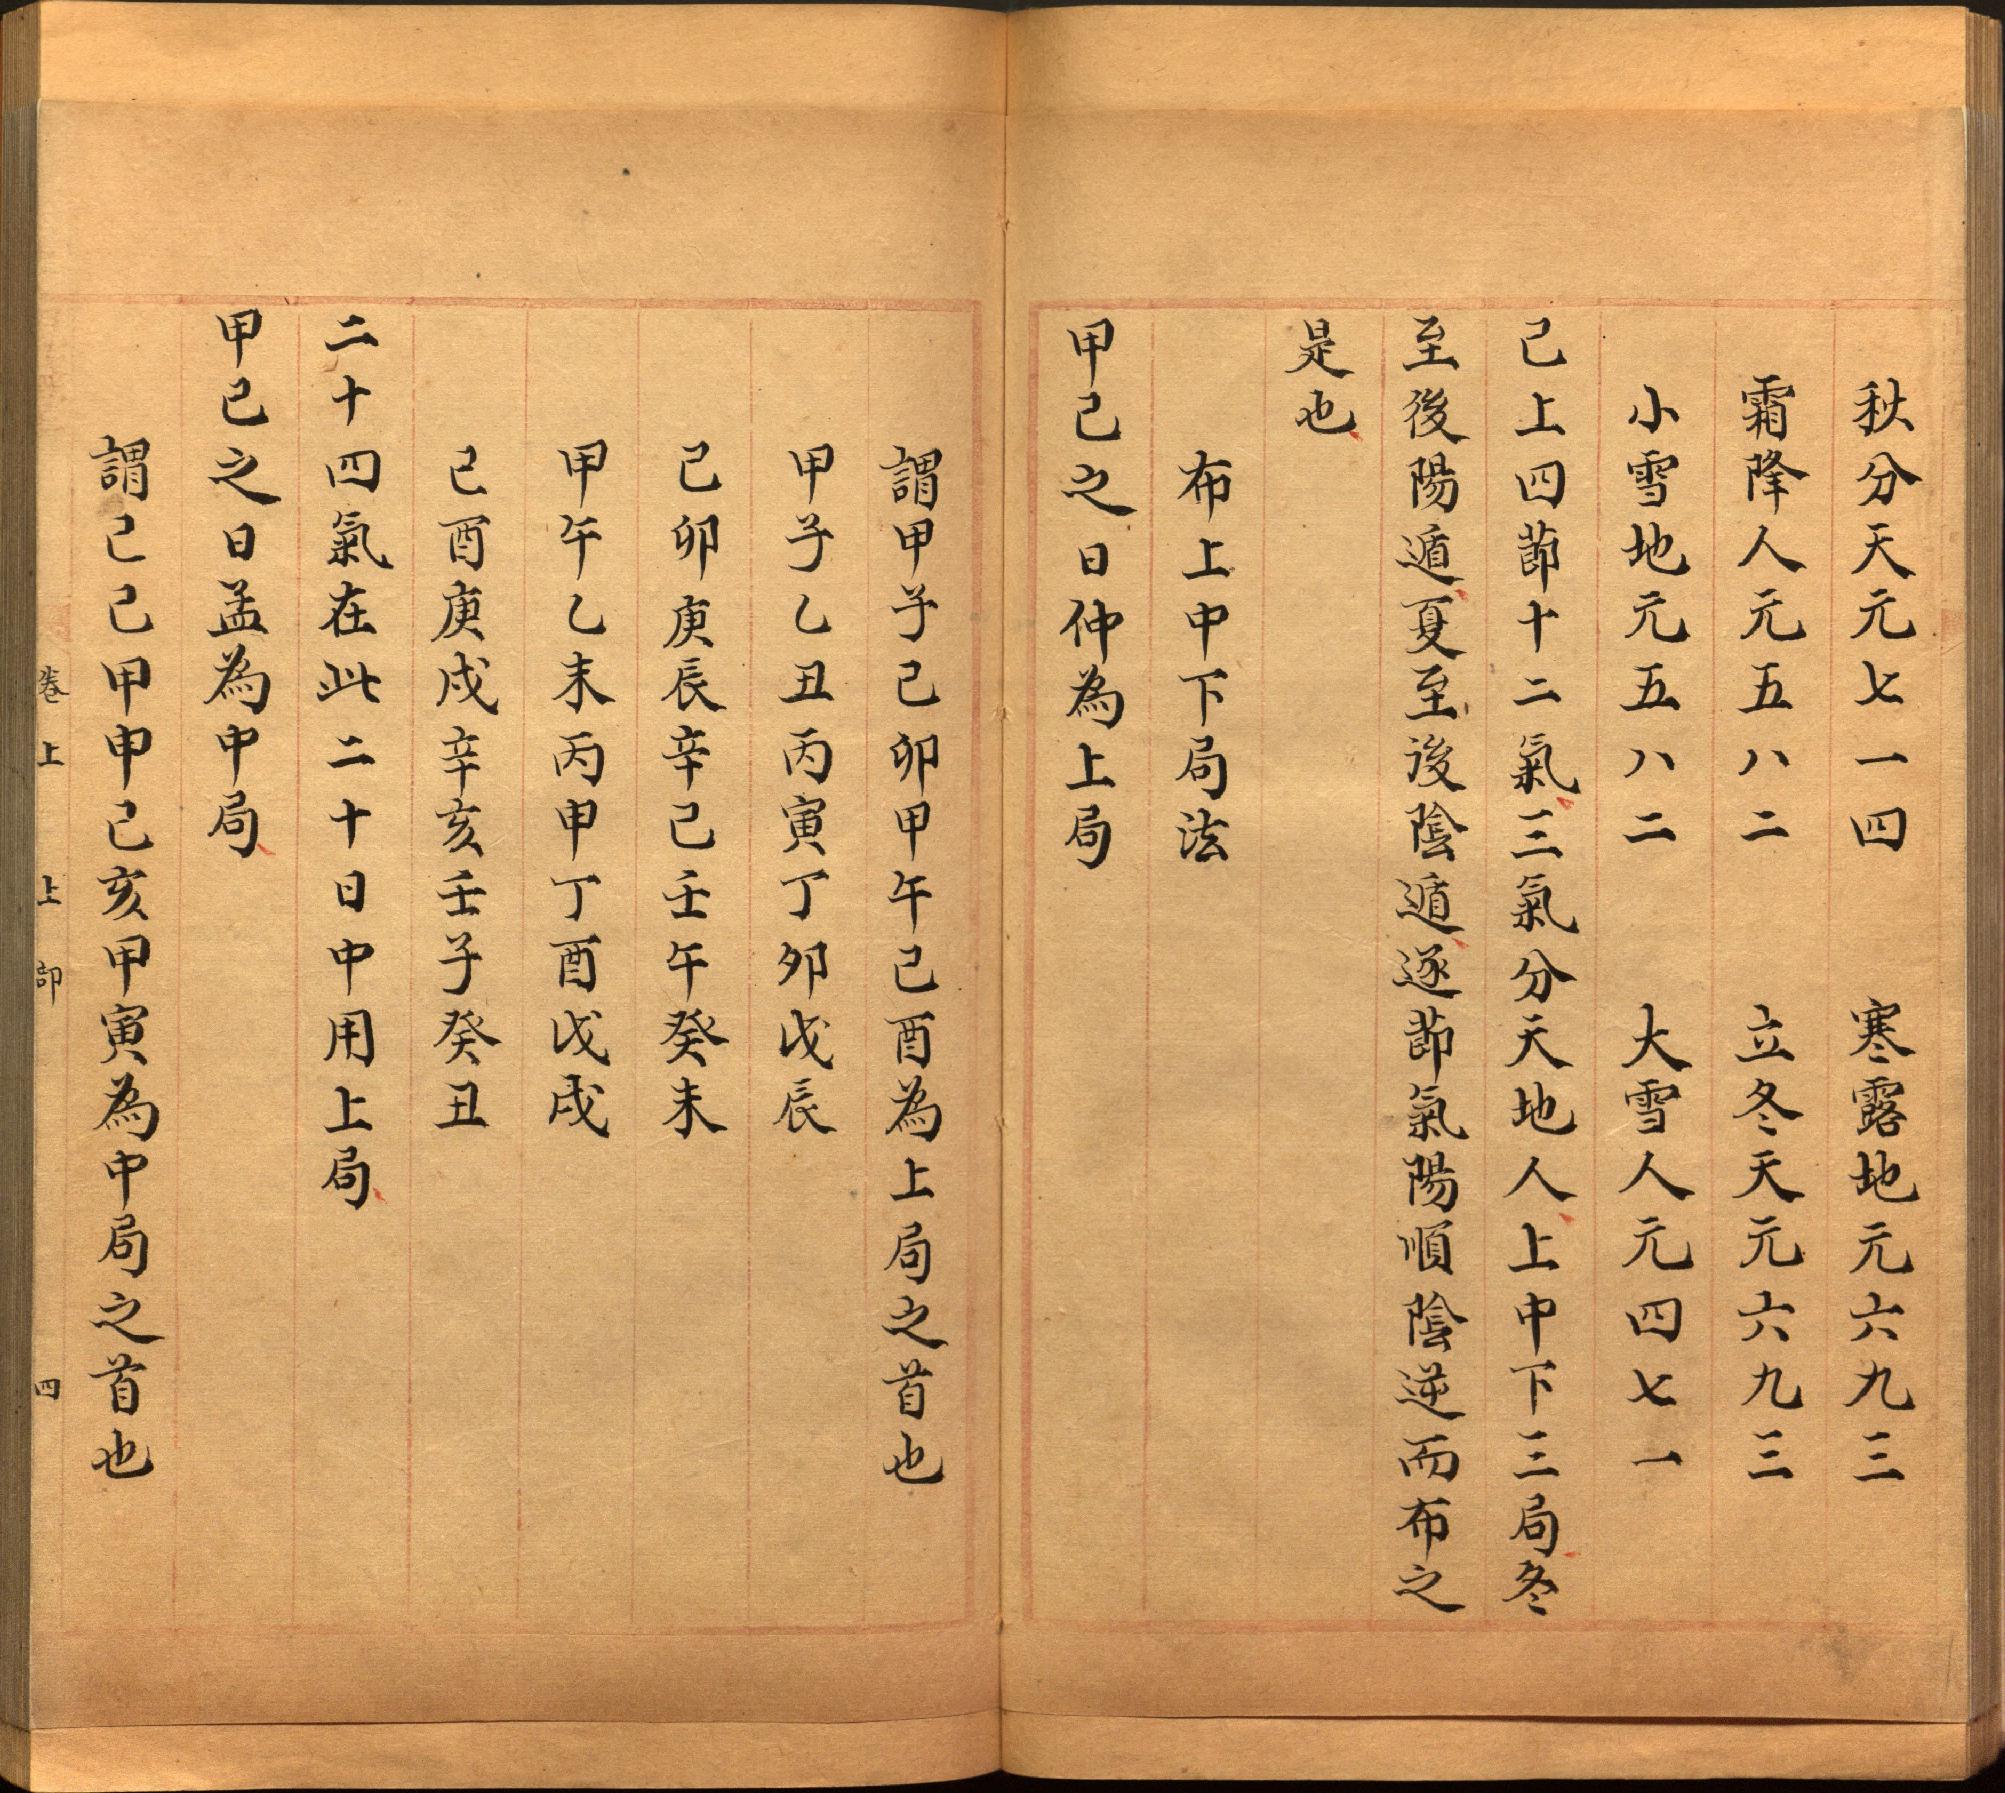 秋分天元七一四　寒露地元六九三
霜降人元五八二　立冬天元六九三
小雪地元五八二　大雪人元四七一
已上四節十二氣三氣分天地人上中下三局冬
至後陽遁夏至後陰遁逐節氣陽順陰逆而布之
是也
布上中下局法
甲己之日仲為上局
謂甲子己卯甲午己酉為上局之首也
甲子乙丑丙寅丁卯戊辰
己卯庚辰辛巳壬午癸未
甲午乙未丙申丁酉戊戌
己酉庚戌辛亥壬子癸丑
二十四氣在此二十日中用上局
甲己之日孟為中局
謂己巳甲申己亥甲寅為中局之首也
卷上　上卯　四